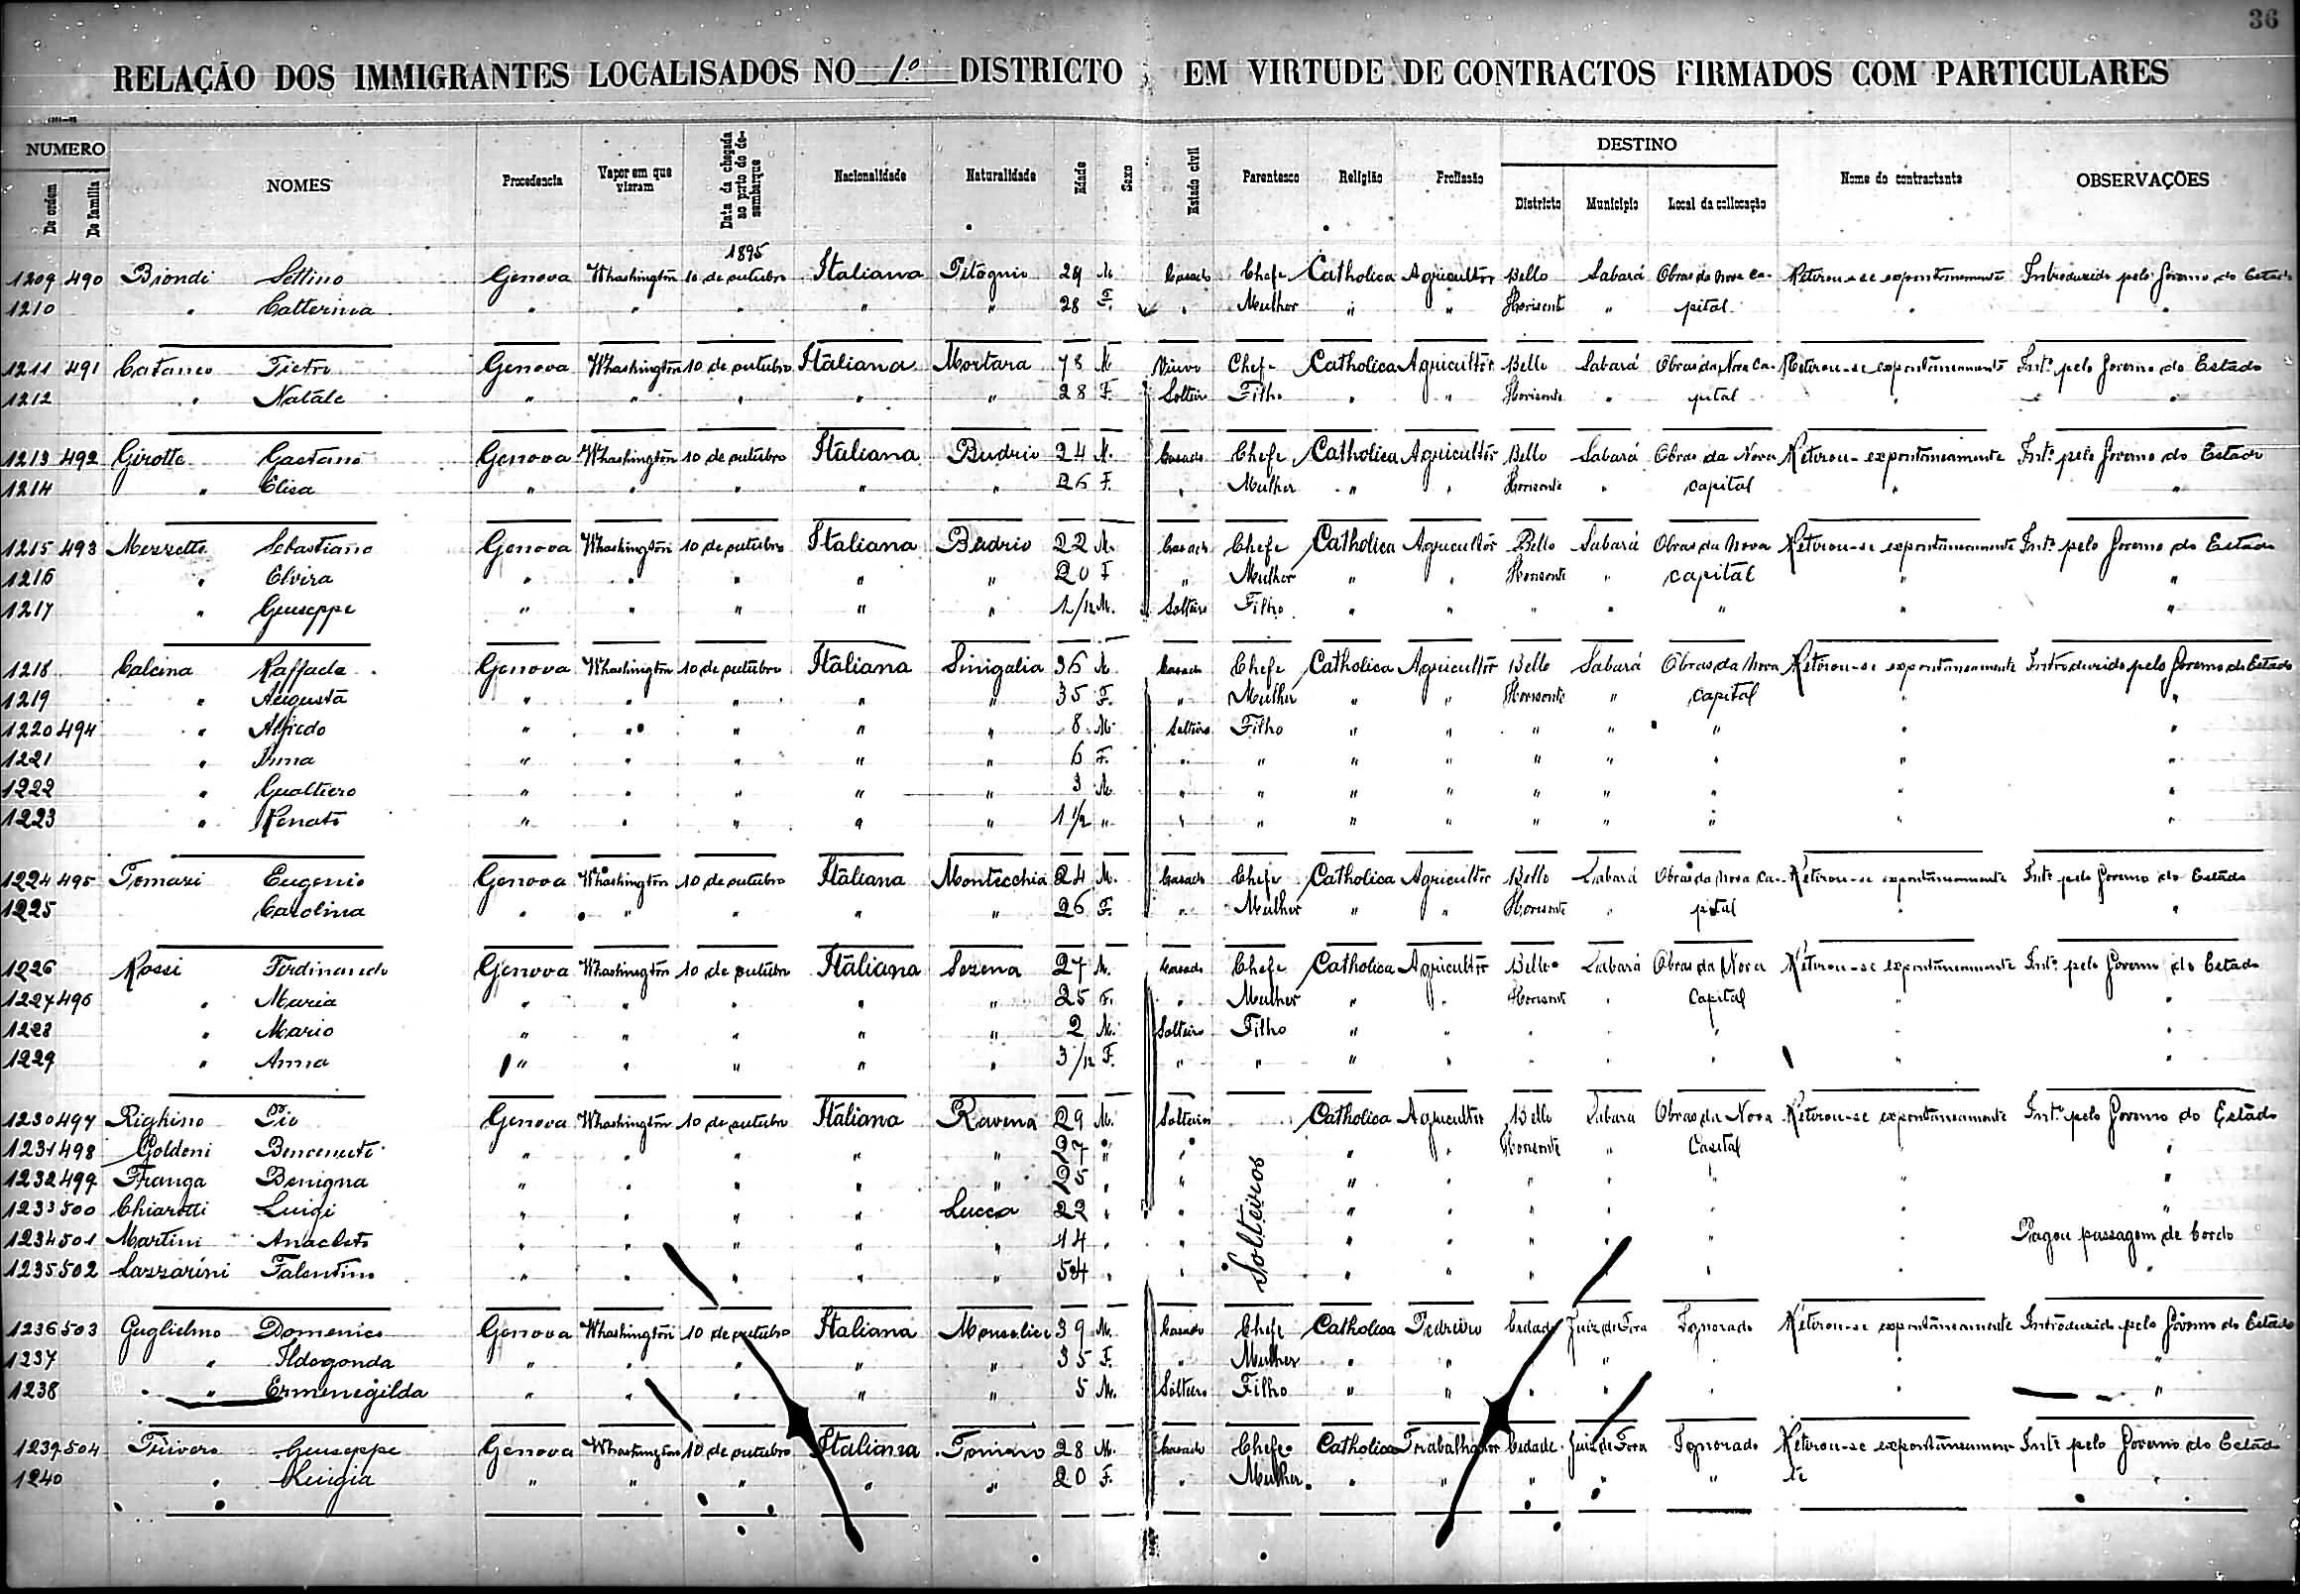 36
RELAÇÃO DOS IMMIGRANTES LOCALISADOS NO 1.º DISTRICTO EM VIRTUDE DE CONTRACTOS FIRMADOS COM PARTICULARES
NUMERO DESTINO
De ordem De familia NOMES Procedencia Vapor em que vieram Data da chegada ao porto do desembarque Nacionalidade Naturalidade Edade Sexo Estado civil Parentesco Religião Profissão Districto Municipio Local da collocação Nome do contractante OBSERVAÇÕES
1895
1209 490 Biondi Settino Genova Whashington 10 de outubro Italiana 29 M. Casado Chefe Catholica Agricultor Bello Sabará Obras da Nova Ca- Retirou-se expontaneamente Introduzido pelo Governo do Estado
1210 " Catterina " " " " " 28 F. " Mulher " " Horisonte " pital " "
1211 491 Cataneo Pietro Genova Whashington 10 de outubro Italiana Mortara 78 M Viuvo Chefe Catholica Agricultor Bello Sabará Obras da Nova Ca- Retirou-se expontaneamente Int.º pelo Governo do Estado
1212 " Natale " " " " " 28 F. Solteiro Filho " " Horisonte " pital " "
1213 492 Girotto Gaetano Genova Whashington 10 de outubro Italiana Budrio 24 M. Casado Chefe Catholica Agricultor Bello Sabará Obras da Nova Retirou- expontaneamente Int.º pelo Governo do Estado
1214 " Elisa " " " " " 26 F. " Mulher " " Horisonte " capital " "
1215 493 Mezzetti Sebastiano Genova Whashington 10 de outubro Italiana Budrio 22 M. Casado Chefe Catholica Agricultor Bello Sabará Obras da Nova Retirou-se expontaneamente Int.º pelo Governo do Estado
1216 " Elvira " " " " " 20 F " Mulher " " Horisonte " capital " "
1217 " Geuseppe " " " " " 1/12 M. Solteiro Filho " " " " " " "
1218 Calcina Raffaele Genova Whashington 10 de outubro Italiana Sinigalia 36 M. Casado Chefe Catholica Agricultor Bello Sabará Obras da Nova Retirou-se expontaneamente Introduzido pelo Governo do Estado
1219 " Augusta " " " " " 35 F. " Mulher " " Horisonte " capital " "
1220 494 " Alfredo " " " " " 8 M. Solteiro Filho " " " " " " "
1221 " " " " " " 6 F. " " " " " " " " "
1222 " Gualtiero " " " " " 3 M. " " " " " " " " "
1223 " Renato " " " " " 1 1/2 " " " " " " " " " "
1224 495 Tomasi Eugenio Genova Whashington 10 de outubro Italiana Montecchia 24 M. Casado Chefe Catholica Agricultor Bello Sabará Obras da Nova Ca- Retirou-se expontaneamente Int.º pelo Governo do Estado
1225 Carolina " " " " " 26 F. " Mulher " " Horisonte " pital " "
1226 Rossi Ferdinando Genova Whashington 10 de outubro Italiana Sezena 27 M. Casado Chefe Catholica Agricultor Bello Sabará Obras da Nova Retirou-se expontaneamente Int.º pelo Governo do Estado
1227 496 " Maria " " " " " 25 F. " Mulher " " Horisonte " Capital " "
1228 " Mario " " " " " 2 M. Solteiro Filho " " " " " " "
1229 " Anna " " " " " 3/12 F. " " " " " " " " "
1230 497 Righino Pio Genova Whashington 10 de outubro Italiana Ravena 29 M. Solteiro Catholica Agricultor Bello Sabara Obras da Nova Retirou-se expontaneamente Int.º pelo Governo do Estado
1231 498 Goldoni Benvenuto " " " " " 27 " " " " Horisonte " Capital " "
1232 499 Franga Benigna " " " " " 25 " " Solteiros " " " " " " "
1233 500 Chiarotti Luigi " " " " Lucca 22 " " " " " " " " "
1234 501 Martini Anacleto " " " " " 14 " " " " " " " " Pagou passagem de bordo
1235 502 Lazzarini Falentino " " " " " 54 " " " " " " " " "
1236 503 Guglielmo Domenico Genova Whashington 10 de outubro Italiana Monselice 39 M. Casado Chefe Catholica Pedreiro Cidade Juiz de Fora Ignorado Retirou-se expontaneamente Introduzido pelo Governo do Estado
1237 " Ildegonda " " " " " 35 F. " Mulher " " " " " " "
1238 " Ermenegilda " " " " " 5 M. Solteiro Filho " " " " " " "
1239 504 Trivero Geuseppe Genova Whashington 10 de outubro Italiana 28 M. Casado Chefe Catholica Trabalhador Cidade Juiz de Fora Ignorado Retirou-se expontaneamen- Int.º pelo Governo do Estado
1240 " Luigia " " " " " 20 F. " Mulher " " " " " te "